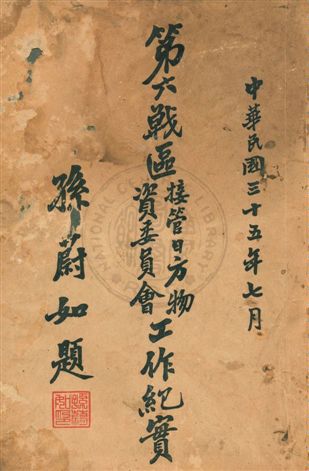 中華民國三十五年七月
第六戰區接管日方物資委員會工作紀實
孫蔚如題
NATIONAL LIBRARY